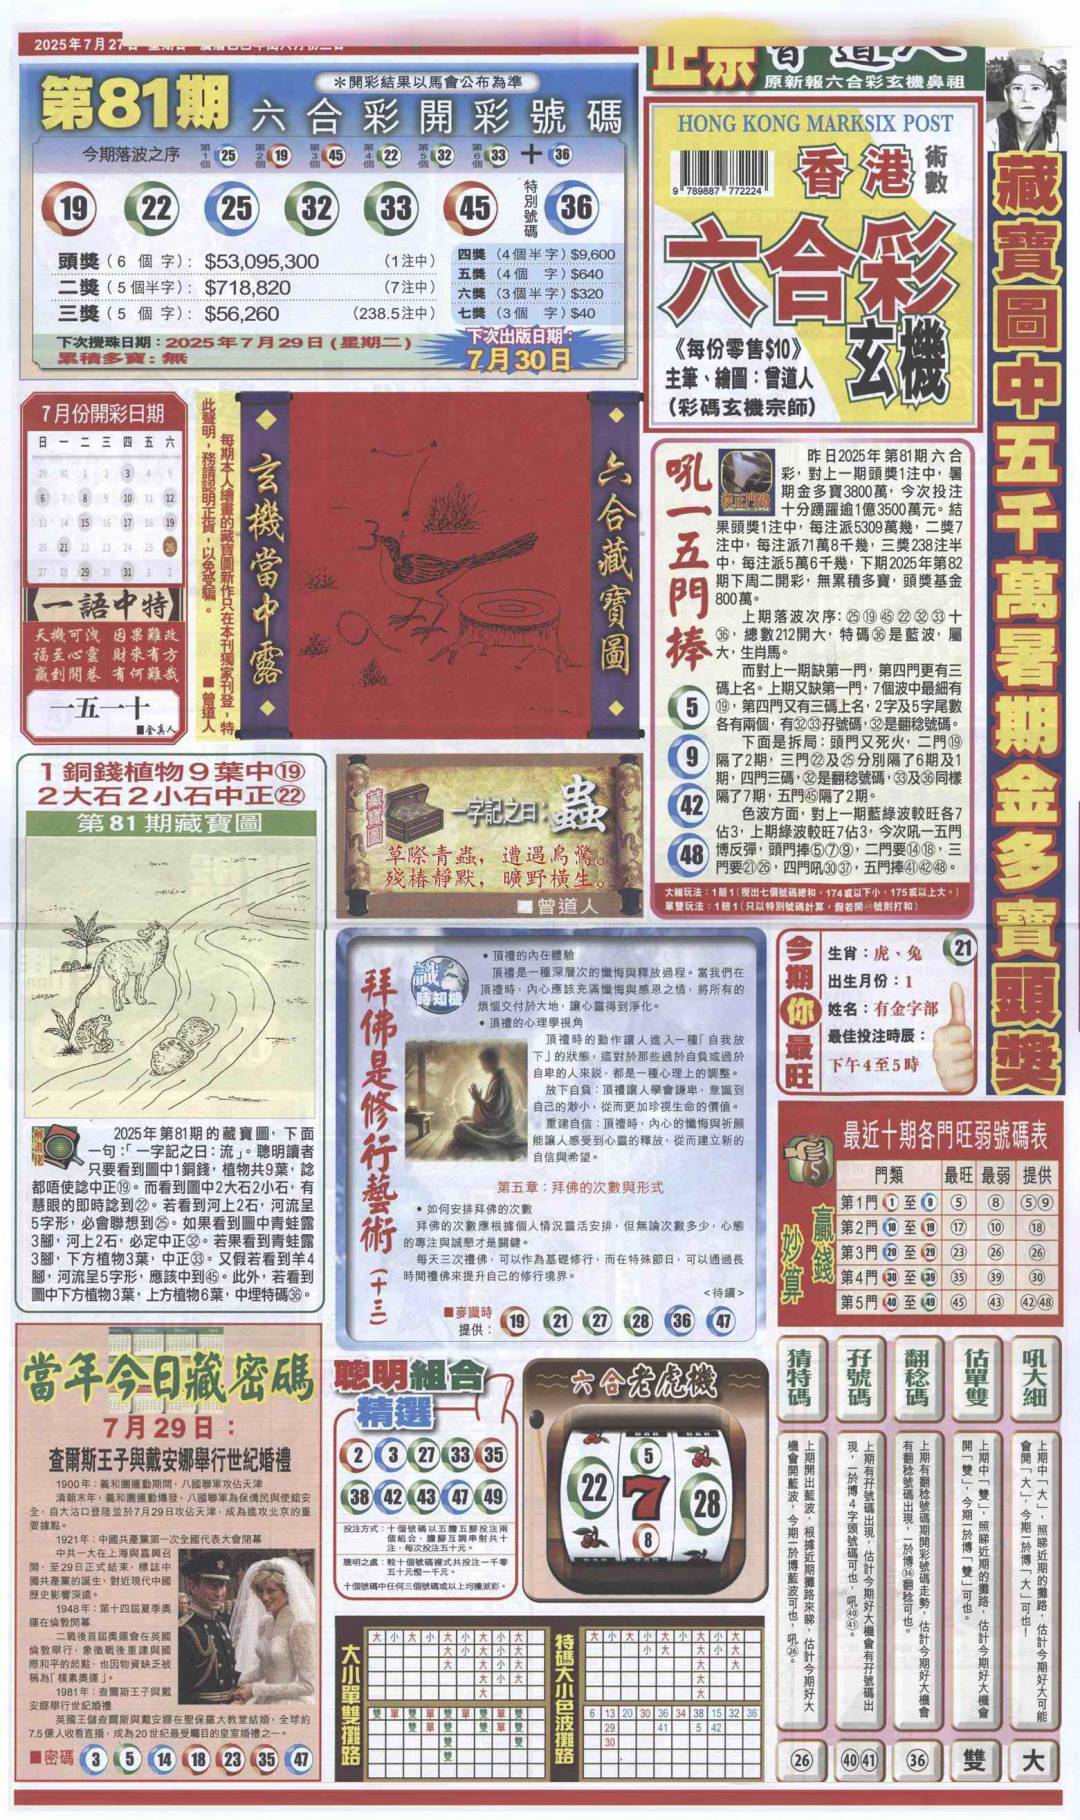 2025年7月27日
正宗曾道人
原新報六合彩玄機鼻祖
第81期
＊開彩結果以馬會公布為準
六合彩開彩號碼
今期落波之序 第1個 25 第2個 19 第3個 45 第4個 22 第5個 32 第6個 33 十 36
19 22 25 32 33 45 特別號碼 36
頭獎(6個字): $53,095,300 (1注中)
二獎(5個半字): $718,820 (7注中)
三獎(5個字): $56,260 (238.5注中)
四獎(4個半字)$9,600
五獎(4個字)$640
六獎(3個半字)$320
七獎(3個字)$40
下次攪珠日期：2025年7月29日(星期二)
累積多寶：無
下次出版日期：
7月30日
HONG KONG MARKSIX POST
9 789887 772224
香港術數
六合彩
玄機
《每份零售$10》
主筆、繪圖：曾道人
(彩碼玄機宗師)
藏寶圖中五千萬暑期金多寶頭獎
7月份開彩日期
日 一 二 三 四 五 六
29 30 1 2 3 4 5
6 7 8 9 10 11 12
13 14 15 16 17 18 19
20 21 22 23 24 25 26
27 28 29 30 31 1 2
一語中特
天機可洩 因果難改
福至心靈 財來有方
贏到開巷 有何難哉
一五一十
■金真人
每期本人繪畫的藏寶圖新作只在本刊獨家刊登，特
此聲明，務請認明正貨，以免受騙。 ■曾道人
六合藏寶圖
玄機當中露
吼一五門棒
5
9
42
48
昨日2025年第81期六合
彩，對上一期頭獎1注中，暑
期金多寶3800萬，今次投注
十分踴躍逾1億3500萬元。結
果頭獎1注中，每注派5309萬幾，二獎7
注中，每注派71萬8千幾，三獎238注半
中，每注派5萬6千幾，下期2025年第82
期下周二開彩，無累積多寶，頭獎基金
800萬。
上期落波次序：㉕⑲㊺㉒㉜㉝十
㊱，總數212開大，特碼㊱是藍波，屬
大，生肖馬。
而對上一期缺第一門，第四門更有三
碼上名。上期又缺第一門，7個波中最細有
⑲，第四門又有三碼上名，2字及5字尾數
各有兩個，有㉜㉝孖號碼，㉜是翻稔號碼。
下面是拆局：頭門又死火，二門⑲
隔了2期，三門㉒及㉕分別隔了6期及1
期，四門三碼，㉜是翻稔號碼，㉝及㊱同樣
隔了7期，五門㊺隔了2期。
色波方面，對上一期藍綠波較旺各7
佔3，上期綠波較旺7佔3，今次吼一五門
博反彈，頭門捧⑤⑦⑨，二門要⑭⑱，三
門要㉑㉖，四門吼㉚㊲，五門捧㊶㊷㊽。
大細玩法：1賠1(攪出七個號碼總和，174或以下小，175或以上大。)
單雙玩法：1賠1(只以特別號碼計算，假若開㊾號則打和)
1銅錢植物9葉中⑲
2大石2小石中正㉒
第81期藏寶圖
2025年第81期的藏寶圖，下面
一句：「一字記之曰：流」。聰明讀者
只要看到圖中1銅錢，植物共9葉，諗
都唔使諗中正⑲。而看到圖中2大石2小石，有
慧眼的即時諗到㉒。若看到河上2石，河流呈
5字形，必會聯想到㉕。如果看到圖中青蛙露
3腳，河上2石，必定中正㉜。若果看到青蛙露
3腳，下方植物3葉，中正㉝。又假若看到羊4
腳，河流呈5字形，應該中到㊺。此外，若看到
圖中下方植物3葉，上方植物6葉，中埋特碼㊱。
藏寶圖
一字記之曰：蟲
草際青蟲，遭遇鳥驚。
殘樁靜默，曠野橫生。
■曾道人
拜佛是修行藝術(十三)
識時知機
• 頂禮的內在體驗
頂禮是一種深層次的懺悔與釋放過程。當我們在
頂禮時，內心應該充滿懺悔與感恩之情，將所有的
煩惱交付於大地，讓心靈得到淨化。
• 頂禮的心理學視角
頂禮時的動作讓人進入一種「自我放
下」的狀態，這對於那些過於自負或過於
自卑的人來説，都是一種心理上的調整。
放下自負：頂禮讓人學會謙卑，意識到
自己的渺小，從而更加珍視生命的價值。
重建自信：頂禮時，內心的懺悔與祈願
能讓人感受到心靈的釋放，從而建立新的
自信與希望。
第五章：拜佛的次數與形式
• 如何安排拜佛的次數
拜佛的次數應根據個人情況靈活安排，但無論次數多少，心態
的專注與誠懇才是關鍵。
每天三次禮佛，可以作為基礎修行，而在特殊節日，可以透過長
時間禮佛來提升自己的修行境界。
<待續>
■麥識時
提供： 19 21 27 28 36 47
今期你最旺
生肖：虎、兔 21
出生月份：1
姓名：有金字部
最佳投注時辰：
下午4至5時
贏錢妙算
最近十期各門旺弱號碼表
門類 最旺 最弱 提供
第1門 1 至 9 ⑤ ⑧ ⑤⑨
第2門 10 至 19 ⑰ ⑩ ⑱
第3門 20 至 29 ㉓ ㉖ ㉖
第4門 30 至 39 ㉟ ㊴ ㉚
第5門 40 至 49 ㊺ ㊸ ㊷㊽
當年今日藏密碼
7月29日：
查爾斯王子與戴安娜舉行世紀婚禮
1900年：義和團運動期間，八國聯軍攻佔天津
清朝末年，義和團運動爆發，八國聯軍為保僑民與使館安
全，自大沽口登陸並於7月29日攻佔天津，成為進攻北京的重
要據點。
1921年：中國共產黨第一次全國代表大會閉幕
中共一大在上海與嘉興召
開，至29日正式結束，標誌中
國共產黨的誕生，對近現代中國
歷史影響深遠。
1948年：第十四屆夏季奧
運在倫敦開幕
二戰後首屆奧運會在英國
倫敦舉行，象徵戰後重建與國
際和平的起點，也因物資缺乏被
稱為「樸素奧運」。
1981年：查爾斯王子與戴
安娜舉行世紀婚禮
英國王儲查爾斯與戴安娜在聖保羅大教堂結婚，全球約
7.5億人收看直播，成為20世紀最受矚目的皇室婚禮之一。
■密碼 3 5 14 18 23 35 47
聰明組合
精選
2 3 27 33 35
38 42 43 47 49
投注方式：十個號碼以五膽五腳投注兩
個組合，膽腳互調串射共十
注，每次投注五十元。
聰明之處：較十個號碼複式共投注一千零
五十元慳一千元。
十個號碼中任何三個號碼或以上均獲派彩。
六合老虎機
22 5 7 8 28
大小單雙攤路
大 小 大 小 大 大 大 大 小
單 雙
特碼大小色波攤路
6 13 20 30 36 34 38 15 32 36
29 41 5 42
30
吼大細
上期中「大」，照睇近期的攤路，估計今期好大可能
會開「大」，今期一於博「大」可也！
大
估單雙
上期中「雙」，照睇近期的攤路，估計今期好大機會
開「雙」，今期一於博「雙」可也。
雙
翻稔碼
上期有翻稔號碼期開彩號碼走勢，估計今期好大機會
有翻稔號碼出現，一於博㊱翻稔可也。
㊱
孖號碼
上期有孖號碼出現，估計今期好大機會有孖號碼出
現，一於博4字頭號碼可也，吼㊵㊶。
㊵㊶
猜特碼
上期開出藍波，根據近期攤路來睇，估計今期好大
機會開藍波，今期一於博藍波可也，吼㉖。
㉖